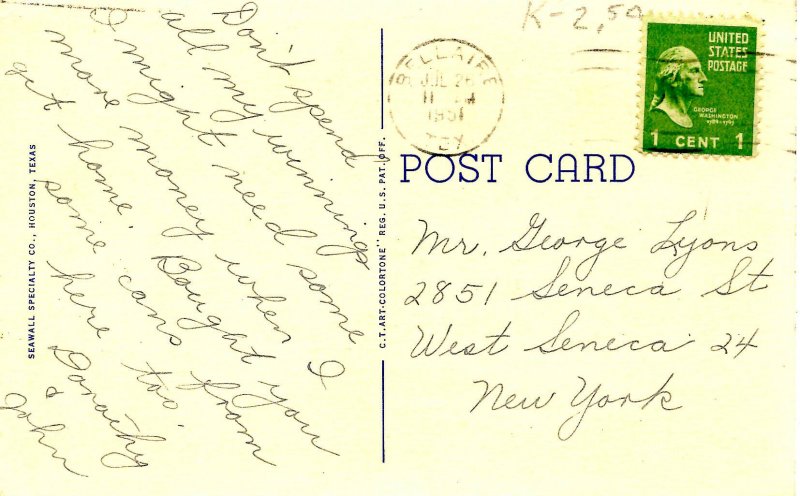 Don't spend
all my winnings
I might need some
more money when I
get home. Bought you
some cans from
here too.
Dorothy
&
John
SEAWALL SPECIALTY CO., HOUSTON, TEXAS
C.T. ART-COLORTONE" REG. U.S. PAT. OFF.
K-2,50
BELLAIRE
JUL 26
1951
TEX
UNITED
STATES
POSTAGE
GEORGE
WASHINGTON
1789-1797
1 CENT 1
POST CARD
Mr. George Lyons
2851 Seneca St
West Seneca 24
New York